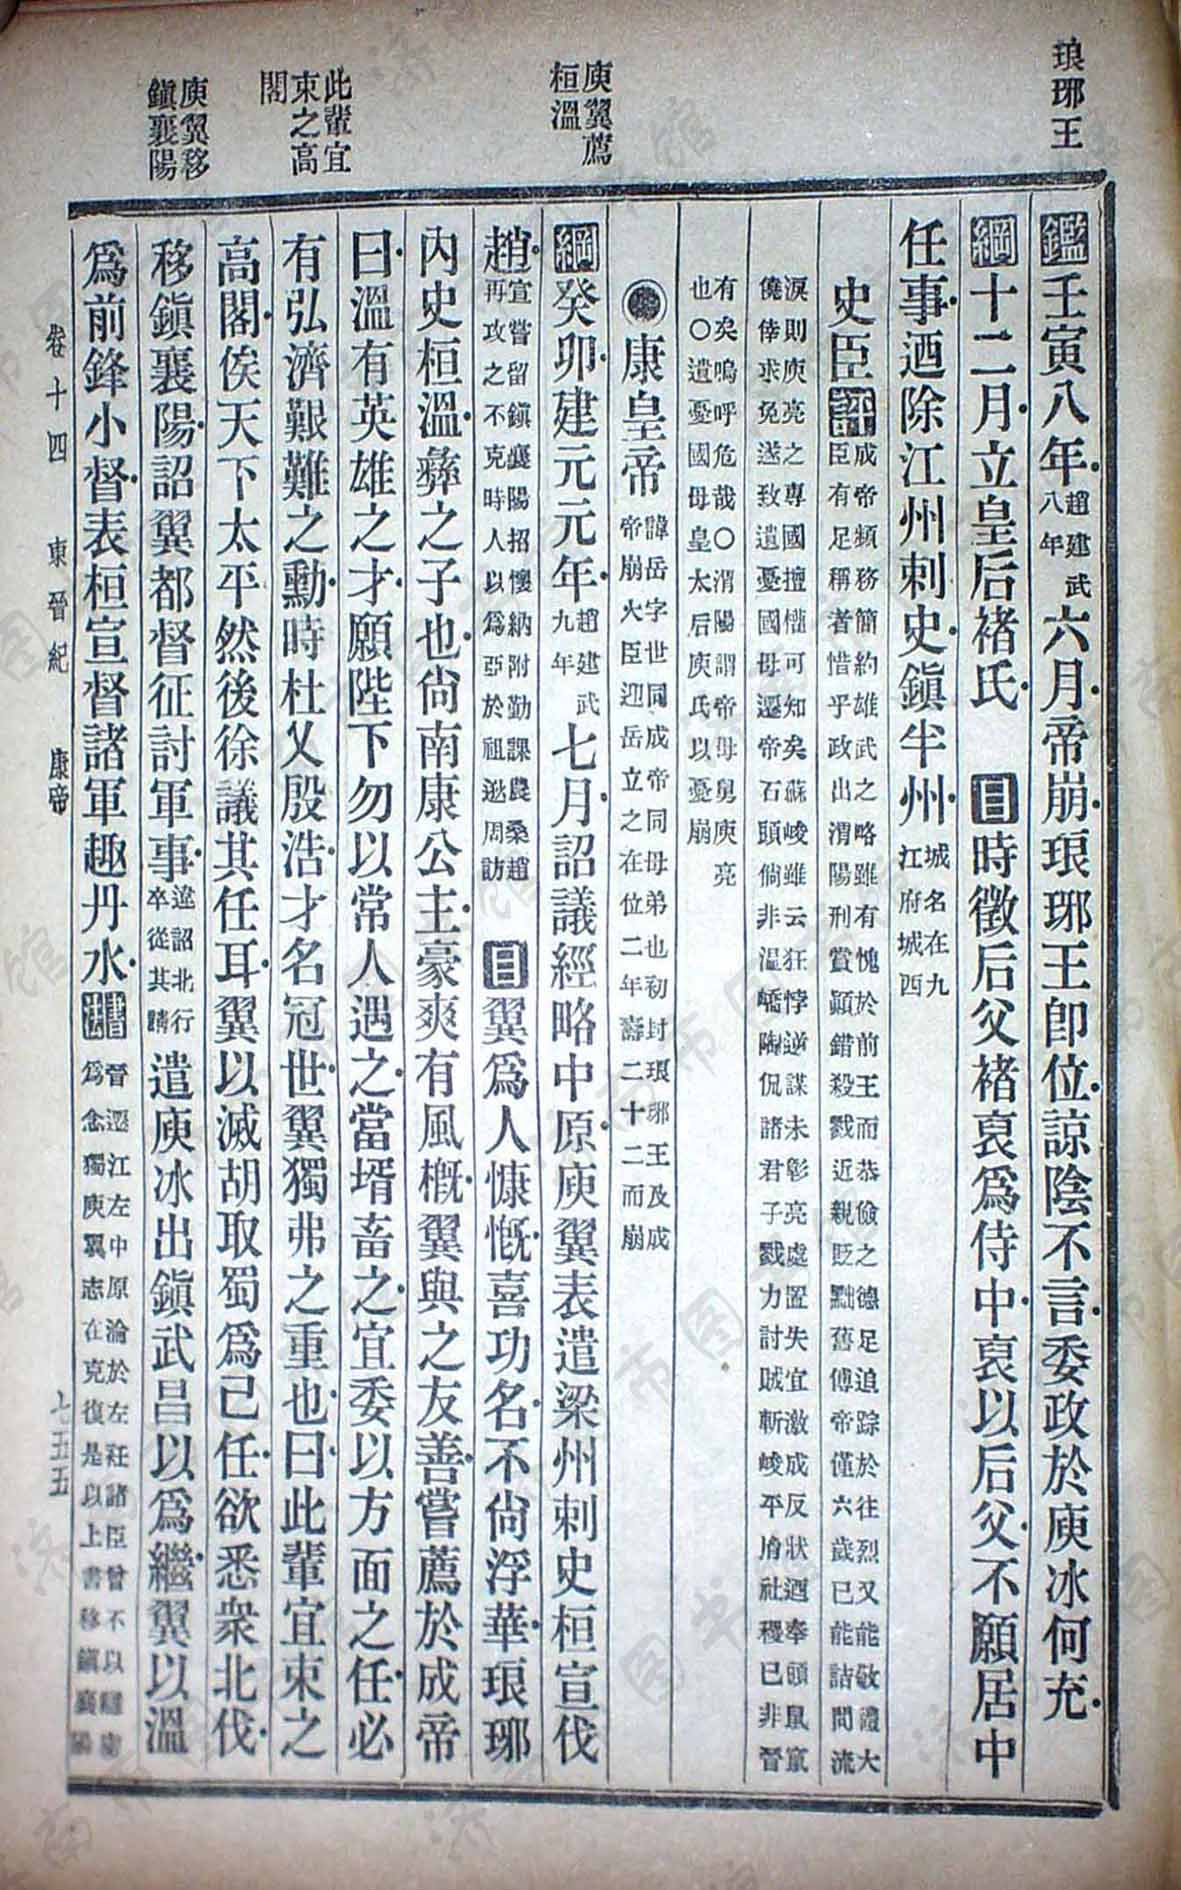 琅琊王
庾翼薦
桓溫
此輩宜
束之高
閣
庾翼移
鎭襄陽
鑑壬寅八年趙建武八年六月帝崩琅琊王卽位諒陰不言委政於庾冰何充
綱十二月立皇后褚氏 目時徵后父褚裒爲侍中裒以后父不願居中
任事迺除江州刺史鎭半州城名在九江府城西
史臣評成帝頻務簡約雄武之略雖有愧於前王而恭儉之德足追踪於往烈又能敬禮大
臣有足稱者惜乎政出渭陽刑賞顚錯殺戮近親貶黜舊傅帝僅六歲已能詰問流
涙則庾亮之專國擅權可知矣蘇峻雖云狂悖逆謀未彰亮處置失宜激成反狀迺奉頭鼠竄
僥倖求免遂致遺憂國母遷帝石頭倘非溫嶠陶侃諸君子戮力討賊斬峻平膾社稷已非晉
有矣嗚呼危哉○渭陽謂帝母舅庾亮
也○遺憂國母皇太后庾氏以憂崩
康皇帝諱岳字世同成帝同母弟也初封琅琊王及成
帝崩大臣迎岳立之在位二年壽二十二而崩
綱癸卯建元元年趙建武九年七月詔議經略中原庾翼表遣梁州刺史桓宣伐
趙宣嘗留鎭襄陽招懷納附勤課農桑趙再攻之不克時人以爲亞於祖逖周訪 目翼爲人慷慨喜功名不尙浮華琅琊
內史桓溫彝之子也尙南康公主豪爽有風概翼與之友善嘗薦於成帝
曰溫有英雄之才願陛下勿以常人遇之當壻畜之宜委以方面之任必
有弘濟艱難之勳時杜乂殷浩才名冠世翼獨弗之重也曰此輩宜束之
高閣俟天下太平然後徐議其任耳翼以滅胡取蜀爲己任欲悉衆北伐
移鎭襄陽詔翼都督征討軍事違詔北行卒從其請遣庾冰出鎭武昌以爲繼翼以溫
爲前鋒小督表桓宣督諸軍趣丹水書法晉遷江左中原淪於左衽諸臣曾不以
爲念獨庾翼志在克復是以上書移鎭襄陽
卷十四 東晉紀 康帝 七五五